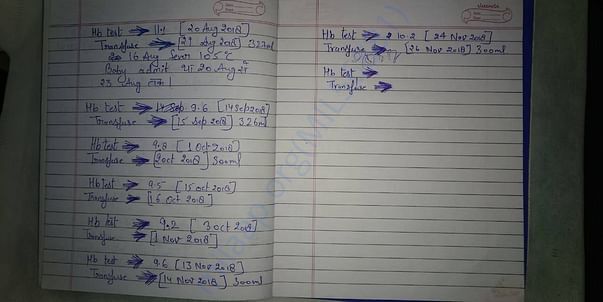 Hb test → 11.1 [20 Aug 2018]
Transfuse → [21 Aug 2018] 327ml
16 Aug fever 105°C
Baby admit था 20 Aug से
23 Aug तक।
Hb test → 9.6 [14 Sep 2018]
Transfuse → [15 Sep 2018] 326ml
Hb test → 9.8 [1 Oct 2018]
Transfuse → [2 Oct 2018] 300ml
Hb test → 9.5 [15 oct 2018]
Transfuse → [16 Oct 2018]
Hb test → 9.2 [3 oct 2018]
Transfuse → [1 Nov 2018]
Hb test → 9.6 [13 Nov 2018]
Transfuse → [14 Nov 2018] 300ml
Hb test → 10.2 [24 Nov 2018]
Transfuse → [26 Nov 2018] 300ml
Hb test →
Transfuse →